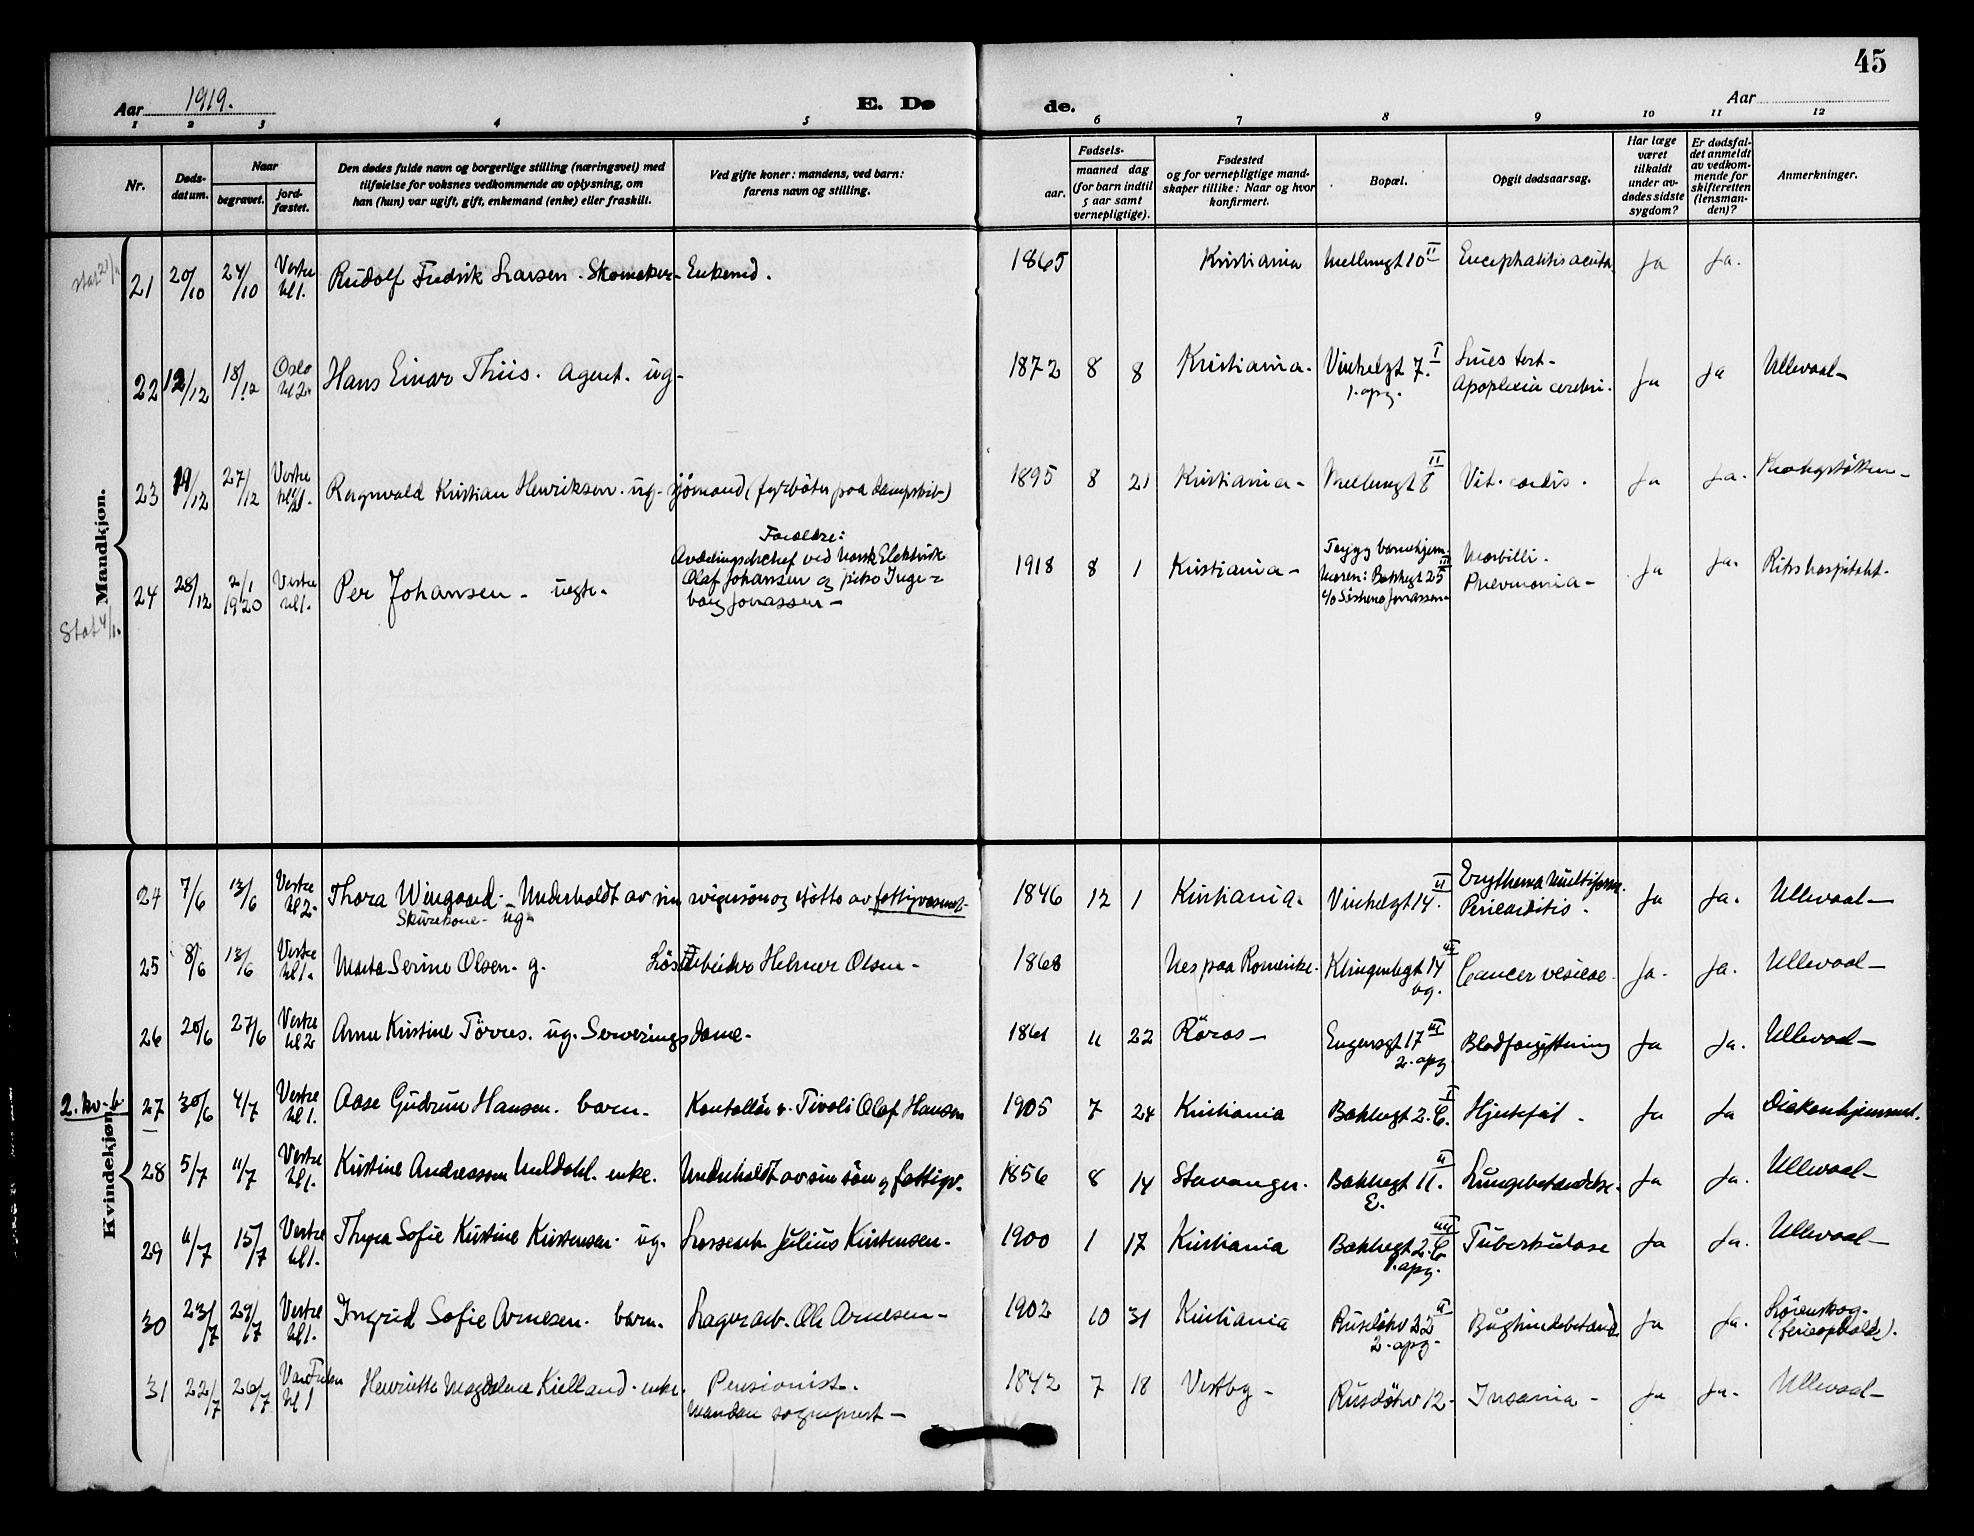 45
Aar 1919.
E. Dø
de.
Aar
1 2 3 4 5 6 7 8 9 10 11 12
Nr.
Døds-
datum.
Naar
begravet.
jord-
fæstet.
Den dødes fulde navn og borgerlige stilling (næringsvei) med
tilføielse for voksnes vedkommende av oplysning, om
han (hun) var ugift, gift, enkemand (enke) eller fraskilt.
Ved gifte koner: mandens, ved barn:
farens navn og stilling.
Fødsels-
aar.
maaned dag
(for barn indtil
5 aar samt
vernepligtige).
Fødested
og for vernepligtige mand-
skaper tillike: Naar og hvor
konfirmert.
Bopæl.
Opgit dødsaarsag.
Har læge
været
tilkaldt
under av-
dødes sidste
sygdom?
Er dødsfal-
det anmeldt
av vedkom-
mende for
skifteretten
(lensman-
den)?
Anmerkninger.
Mandkjøn.
21 20/10 24/10 Vestre kl 1. Rudolf Fredrik Larsen. Skomaker- Enkemd. 1865 Kristiania Mellemgt 10 II Encephalitis acuta Ja Ja.
22 12/12 18/12 Oslo kl 2. Hans Einar Thiis. Agent. ug- 1872 8 8 Kristiania. Vinkelgt 7. I
1. opg.
Lues tert-
Apoplexia cerebri. Ja Ja Ullevaal-
23 19/12 27/12 Vestre Ragnvald Kristian Henriksen. ug- sjömand (fyrböter paa dampskib-) 1895 8 21 Kristiania- Mellemgt 8 II Vit. cordis. Ja Ja. Krohgstötten-
24 28/12 2/1 1920 Vestre kl 1. Per Johansen - uegte.
Forældre:
Avdelingschef ved Norsk Elektrisk
Olaf Johansen og Inge=
borg Jonassen-
1918 8 1 Kristiania-
Moren: Bakkegt 25 III
c/o Jonassen-
Morbilli.
Pneumonia- Ja Ja. Rikshospitalet.
Stat 4/1.
Kvindekjøn.
24 7/6 13/6 Vestre kl 2. Thora Wingaard- Underholdt av sin svigersön og stötte av fattigvæsenet-
Skurekone- ug-
1846 12 1 Kristiania. Vinkelgt 14. II
Erythema multiforme.
Pericarditis. Ja Ja. Ullevaal-
25 8/6 13/6 Vestre kl 1. Marta Serine Olsen. g. Lösarbeider Helmer Olsen- 1868 Nes paa Romerike. Klingenbgt 14 III
og.
Cancer vesicae. Ja. Ja. Ullevaal-
26 20/6 27/6 Vestre kl 2 Anne Kristine Törres. ug. Serveringsdame- 1861 11 22 Röros- Engensgt 17 III
2. opg
Blodforgiftning Ja Ja. Ullevaal-
2. kv-b
27 30/6 4/7 Vestre kl 1. Aase Gudrun Hansen. barn- Kontollör v. Tivoli Olaf Hansen 1905 7 24 Kristiania Bakkegt 2. C. I Hjertefeil. Ja Ja Diakonhjemmet.
28 5/7 11/7 Vestre kl 1. Kristine Andreassen Meldahl. enke. Underholdt av sin sön og fattigv. 1856 8 14 Stavanger. Bakkegt 11. II
E.
Lungebetændelse. Ja Ja. Ullevaal-
29 11/7 15/7 Vestre kl 1. Thyra Sofie Kristine Kristensen. ug. Lossearb. Julius Kristensen. 1900 1 17 Kristiania Bakkegt 2. C
1. opg.
Tuberkulose Ja Ja. Ullevaal-
30 23/7 29/7 Vestre kl 1. Ingrid Sofie Arnesen. barn. Lagerarb. Ole Arnesen- 1902 10 31 Kristiania Ruselökv 22 II
2. opg.
Bughindebetænd. Ja Ja. Lörenskog.
(ferieophold).
31 22/7 26/7 Vor Frelser kl 1 Henriette Magdalene Kielland. enke. Pensionist.
Manden sogneprest-
1842 7 18 Vestby- Ruselökv 12- Insania- Ja Ja- Ullevaal-